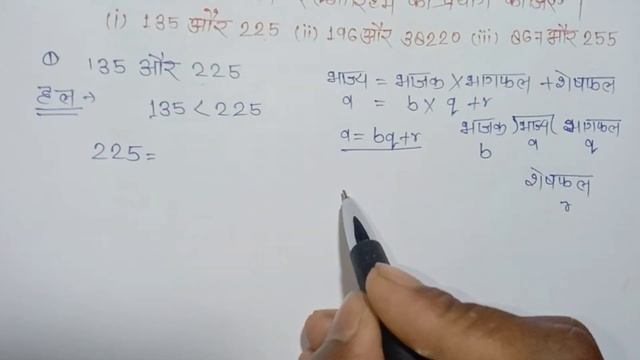 का प्रयोग कीजिए।
(i) 135 और 225 (ii) 196 और 38220 (iii) 867 और 255
① 135 और 225
हल → 135 < 225
225 =
भाज्य = भाजक × भागफल + शेषफल
a = b × q + r
a = bq+r
भाजक ) भाज्य ( भागफल
b a q
शेषफल
r